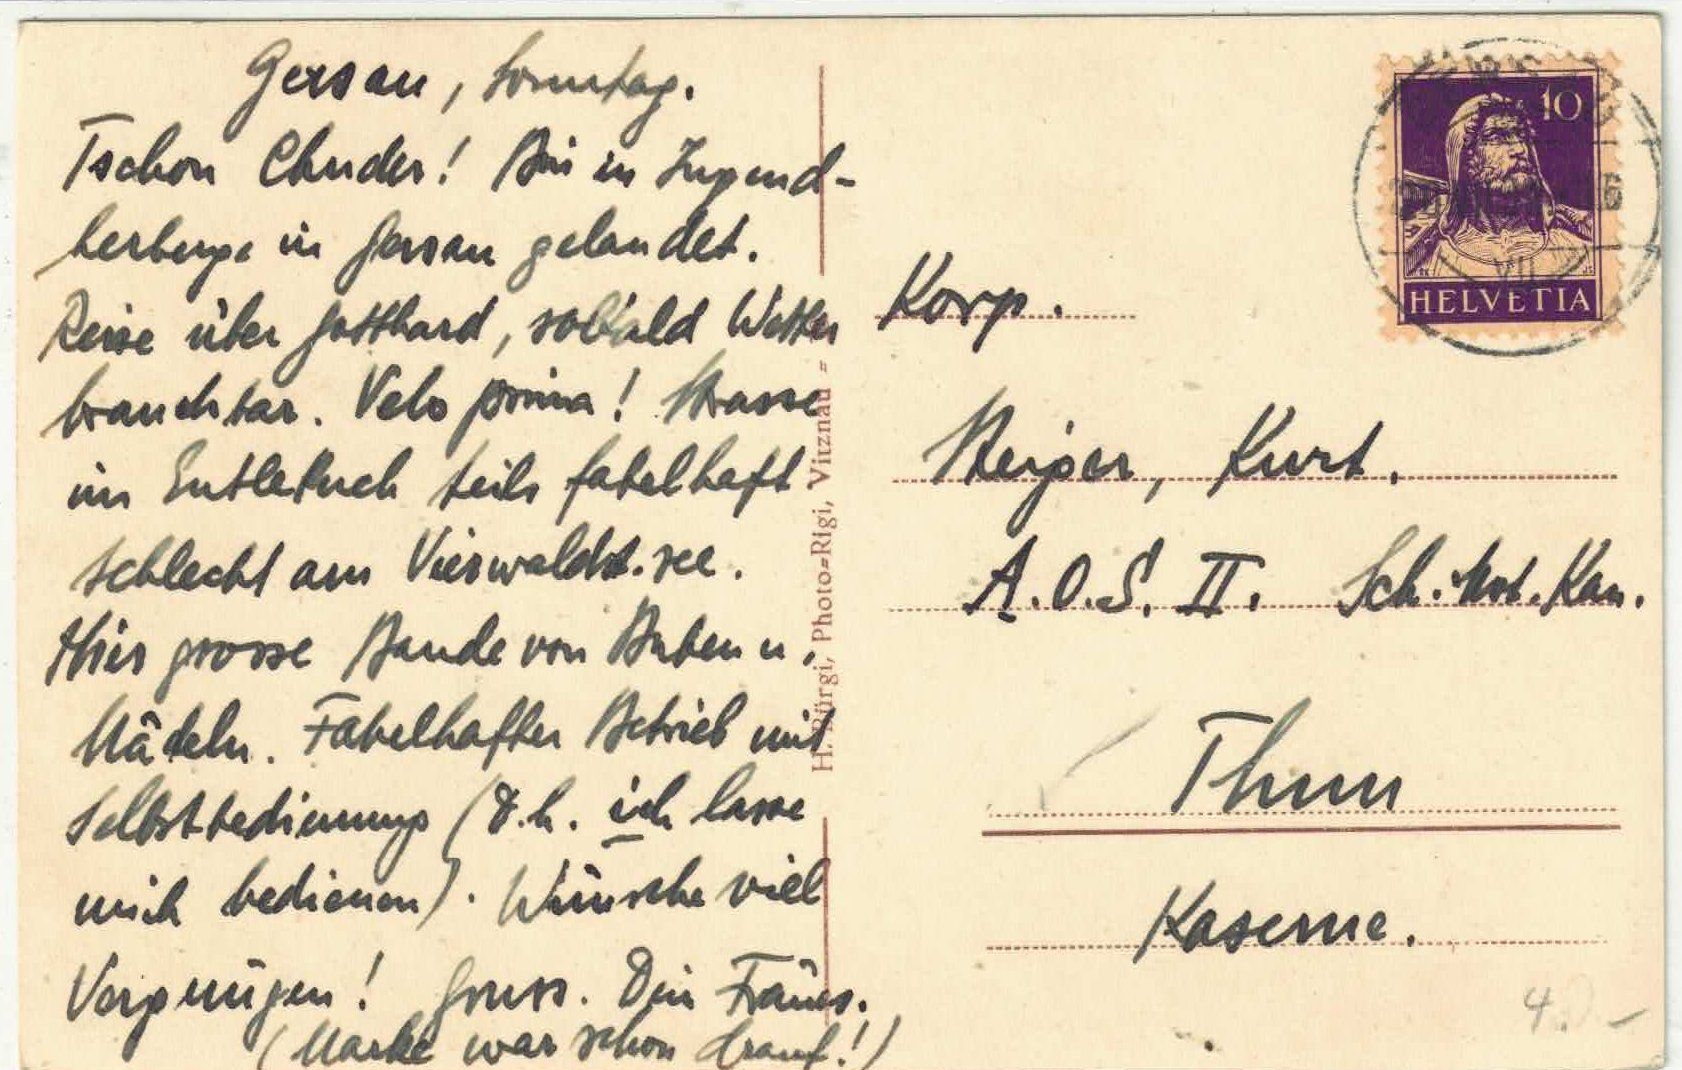 Gersau, Sonntag.
Tschou Chuder! Bin in Jugend-
herberge in Gersau gelandet.
Reise über Gotthard, sobald Wetter
brauchbar. Velo prima! Strasse
im Entlebuch teils fabelhaft
schlecht am Vierwaldst.see.
Hier grosse Bande von Buben u.
Mädeln. Fabelhafter Betrieb mit
Selbstbedienung (d.h. ich lasse
mich bedienen). Wünsche viel
Vergnügen! Gruss. Dein
(Marke war schon drauf!)
H. Bürgi, Photo=Rigi, Vitznau =
10
HELVETIA
Korp.
Kurt.
A.O.S. II. Sch. Mot. Kan.
Thun
Kaserne.
4.